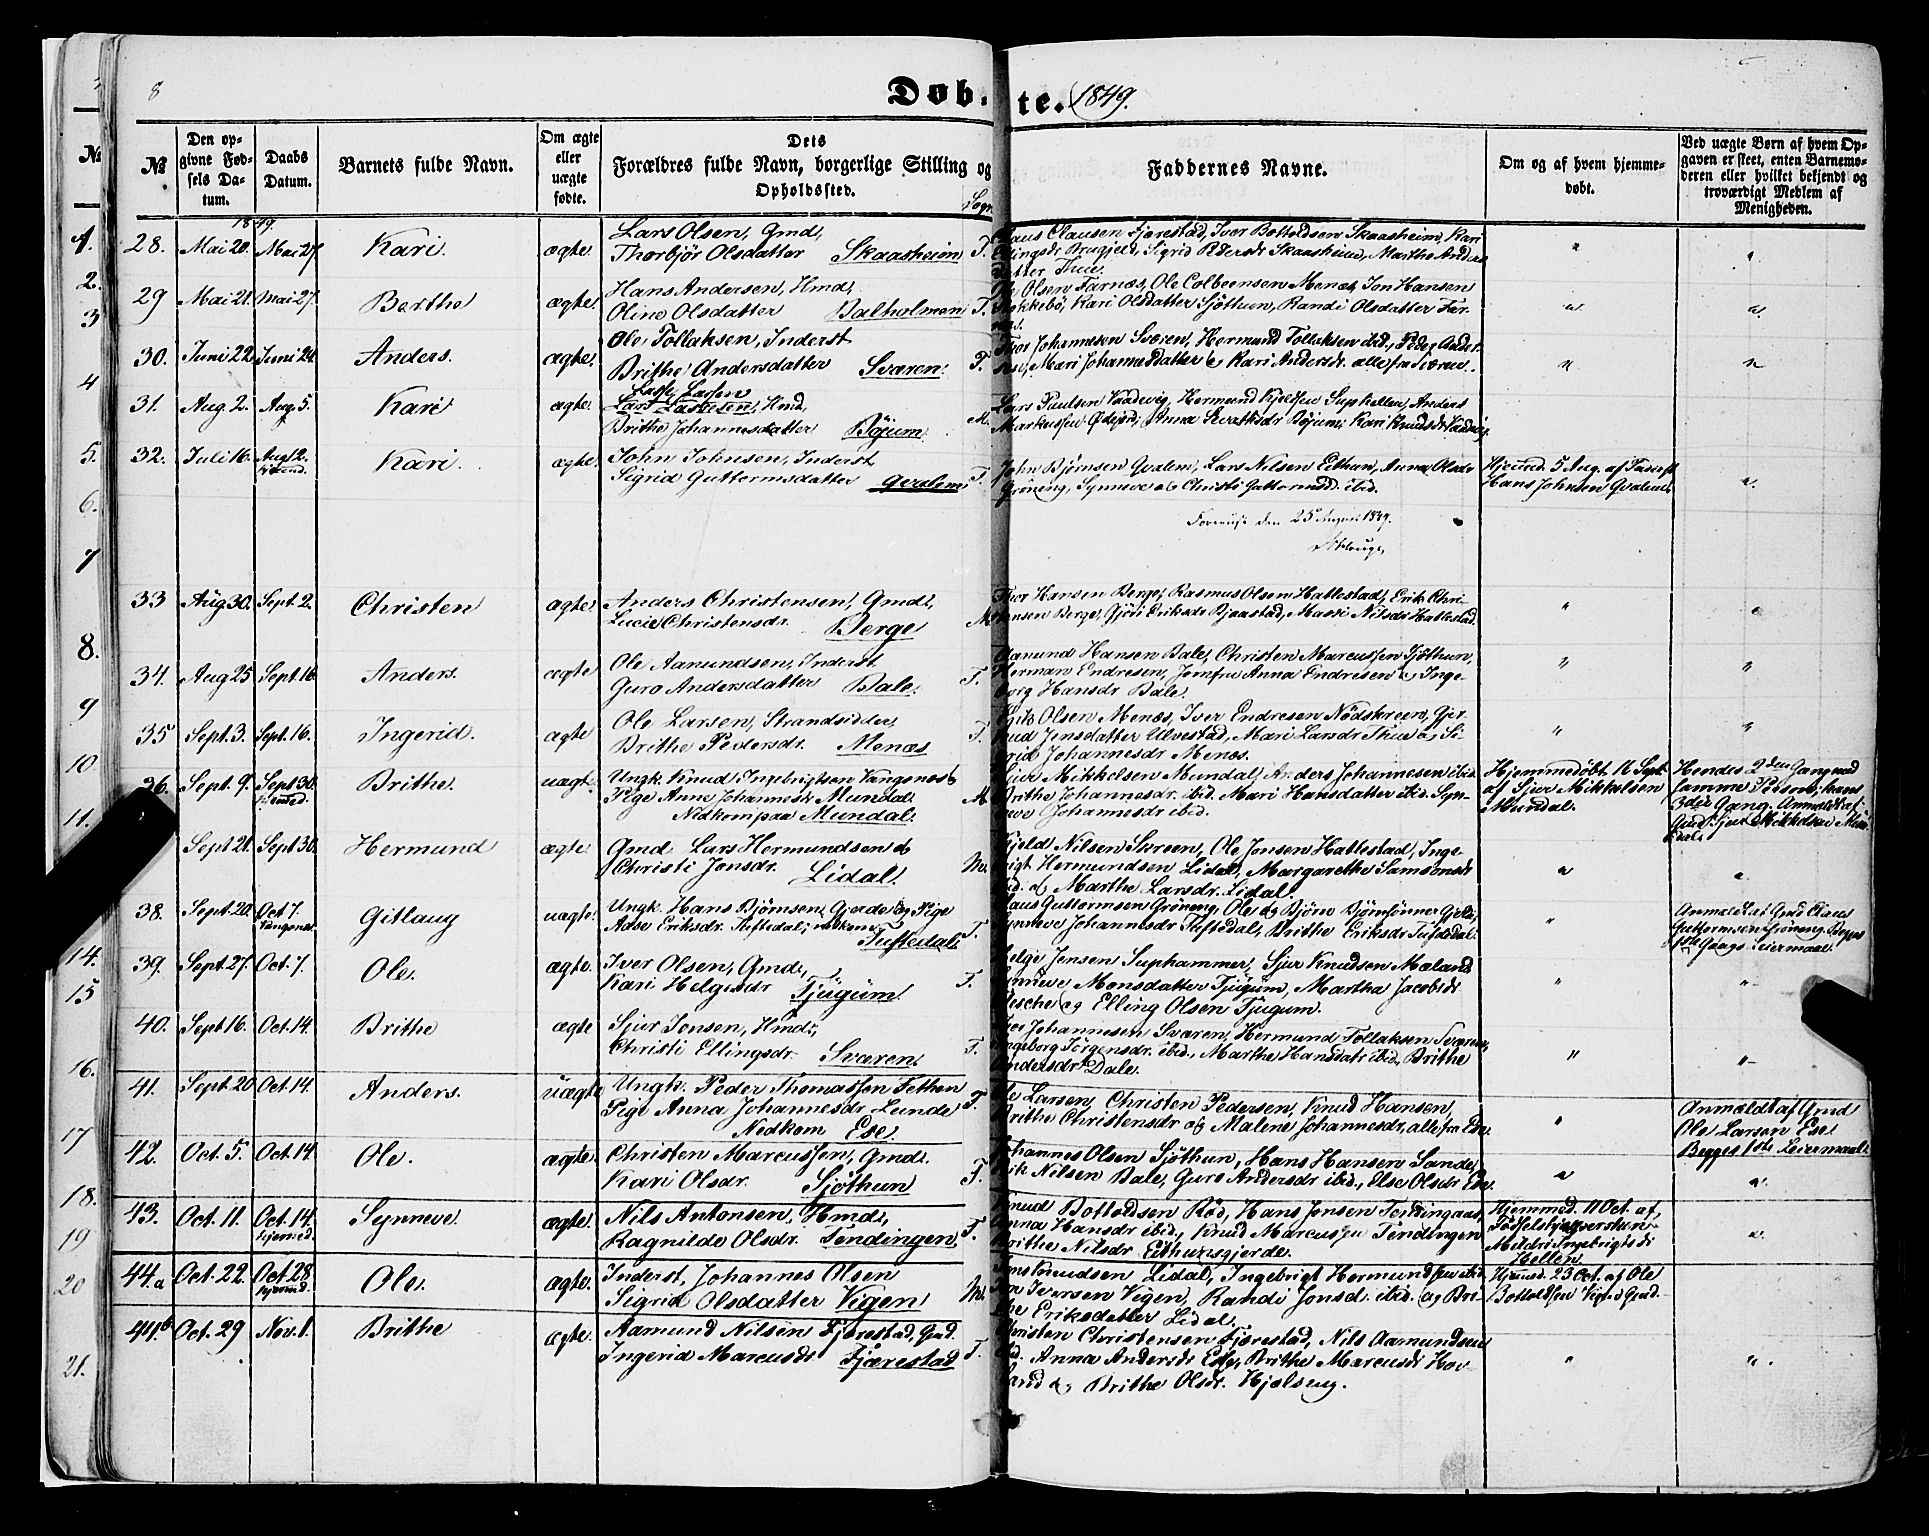 8
Døb- te. 1849.
№
Den opgivne Fødsels Datum.
Daabs Datum.
Barnets fulde Navn.
Om ægte eller uægte fødte.
Dets Forældres fulde Navn, borgerlige Stilling og Opholdssted.
Sogn
Faddernes Navne.
Om og af hvem hjemmedøbt.
Ved uægte Børn af hvem Opgaven er skeet, enten Barnemoderen eller hvilket bekjendt og troværdigt Medlem af Menigheden.
1849.
28. Mai 20. Mai 27. Kari. ægte.
Lars Olsen, Gmd,
Thorbjör Olsdatter Skaasheim T.
Claus Clausen Fjærestad, Iver Botholdsen Skaasheim, Kari
Ellingsdr Brugjeld, Sigrid Pedersdr Skaasheim, Marthe Anders
datter Thue.
29 Mai 21. Mai 27. Berthe ægte.
Hans Andersen, Hmd,
Oline Olsdatter Balholmen T.
Olsen Farnæs, Ole Colbeensen Menæs, Jon Hansen
Kari Olsdatter Sjøthun, Randi Olsdatter Far-
30. Juni 22. Juni 24. Anders. ægte.
Ole Tollaksen, Inderst
Brithe Andersdatter Sværen. T.
Thor Johannesen Sværen, Hermund Tollaksen ibid., Peder Ander-
Mari Johannesdatter & Kari Andersdr. alle fra Sværen.
31. Aug 2. Aug 5. Kari ægte.
Lasse Lassen
Hmd,
Brithe Johannesdatter Böjum M.
Lars Paulsen Vaadvig, Hermund Kjeldsen Suphellen, Anders
Markussen Ødejord, Anna Böjum, Kari Knudsdr Vaadvig.
32. Juli 16. Aug 12. Kari. ægte.
John Johnsen, Inderst
Sigrid Guttormsdatter Qvalem T.
John Bjørnsen Qvalem, Lars Nilsen Eithun, Anna Olsdr
Grøneng, Synneve & Christi Guttormsd. ibid.
Hjemd. 5 Aug. af
Hans Johnsen Qvalem
den 25 August 1849.
33 Aug 30. Sept. 2. Christen ægte.
Anders Christensen, Gmd,
Lucie Christensdr. Berge M.
Thor Hansen Berge, Rasmus Olsen Hatlestad, Erik Chri-
stensen Berge, Gjöri Eriksdr Bjaastad, Mari Nilsdr Hatlestad.
34. Aug 25 Sept. 16. Anders. ægte
Ole Aamundsen, Inderst
Guro Andersdatter Bale. T.
Aamund Hansen Bale, Christen Marcussen Sjöthun,
Herman Endresen, Jomfru Anna Endresen & Inge-
borg Hansdr Bale.
35 Sept. 3. Sept. 16. Ingerid. ægte
Ole Larsen, Strandsidder,
Brithe Pedersdr. Menæs T.
Erik Olsen Menæs, Iver Endresen Nødskreen, Gjer-
trud Jensdatter Ulvestad, Mari Larsdr Thue & Si-
grid Johannesdr Menæs.
36. Sept. 9. Sept 30. Brithe. uægte.
Hjemmed.
Ungk. Knud Ingebrigtsen Vangsnes &
Pige Anne Johannesdr Mundal
Nedkom paa Mundal. M.
Sjur Mikkelsen Mundal, Anders Johannesen ibid.
Brithe Johannesdr. ibid. Mari Hansdatter ibid. Syn-
neve Johannesdr ibid.
Hjemmedöbt 16 Sept.
af Sjur Mikkelsen
Mundal.
Hendes 2den Gang med
samme Person, hans
3die Gang. Anmeldt af
Gmd Sjur Mikkelsen Mun-
dal.
Sept 21. Sept 30. Hermund ægte
Gmd Lars Hermundsen &
Christi Jonsdr. Lidal. M.
Kjeld Nilsen Skreen, Ole Jonsen Hatlestad, Inge-
brigt Hermundsen Lidal, Margarethe Samsonsdr
ibid. & Marthe Larsdr. Lidal.
38. Sept. 20. Oct 7. Gitlaug uægte.
Vangsnes.
Ungk. Hans Björnsen Gjerde og Pige
Adse Eriksdr. Tuftedal; nedkom
Tuftedal T.
Claus Guttormsen Grøneng, Ole og Bjørn Bjørnsönner Gjerde,
Synneve Johannesdr Tuftedal, Brithe Eriksdr Tuftedal.
Anmeldt af Gmd Claus
Guttormsen Grøneng. Begges
1ste Gangs Leiermaal.
39. Sept. 27. Oct. 7. Ole. ægte.
Iver Olsen, Gmd,
Kari Helgesdr Tjugum. T.
Helge Jensen Suphammer, Sjur Knudsen Mæland
Synneve Monsdatter Tjugum, Martha Jacobsdr
Hesche og Elling Olsen Tjugum.
40. Sept 16. Oct. 14. Brithe ægte
Sjur Jonsen, Hmd,
Christi Ellingsdr. Sværen. T.
Johannesen Sværen, Hermund Tollaksen Sværen,
Ingeborg Jörgensdr. ibid., Marthe Hansdatr ibid, Brithe
Andersdr Dale.
41. Sept. 20 Oct. 14. Anders. uægte
Ungk. Peder Thomassen Fethen
Pige Anna Johannesdr Lunde
Nedkom Ese. T.
Ole Larsen, Christen Pedersen, Knud Hansen,
Brithe Christensdr & Malene Johannesdr, alle fra Ese.
Anmeldt af Gmd
Ole Larsen Ese.
Begges 1ste Leiermaal.
42. Oct. 5. Oct. 14. Ole. ægte.
Christen Marcussen, Gmd.
Kari Olsdr. Sjöthun T.
Johannes Olsen Sjöthun, Hans Hansen Sande,
Erik Nilsen Bale, Guro Andersdr ibid., Else Olsdr Ese.
43. Oct. 11. Oct. 14. Synneve. ægte.
Hjemmed.
Nils Antonsen, Hmd,
Ragnilde Olsdr. Tendingen T.
Knud Botholdsen Röd, Hans Jonsen
Anna Hansdr ibid., Knud Marcussen Tendingen
Brithe Nilsdr Eithunsgjerde.
Hjemmed. 11 Oct. af
Mildri Ingebrigtsdr
Hellen.
44.a Oct. 22. Oct 28 Ole. ægte.
Hjemmd.
Inderst, Johannes Olsen
Sigrid Olsdatter Vigen M.
Knudsen Lidal, Ingebrigt Hermundsen ibid.
Iversen Vigen, Randi Jonsd. ibid. og Bri-
the Eriksdatter Lidal.
Hjemd. 23 Oct. af Ole
Botholdsen Vigen Gmd.
44.b Oct. 29 Nov. 1. Brithe ægte.
Aamund Nilsen Fjærestad, Gmd.
Ingerid Marcusdr Fjærestad T.
Christen Christensen Fjærestad, Nils Aamundsen
ibid. Anna Andersdr Ese, Brithe Marcusdr Hov-
land & Brithe Olsdr. Hjelseng.